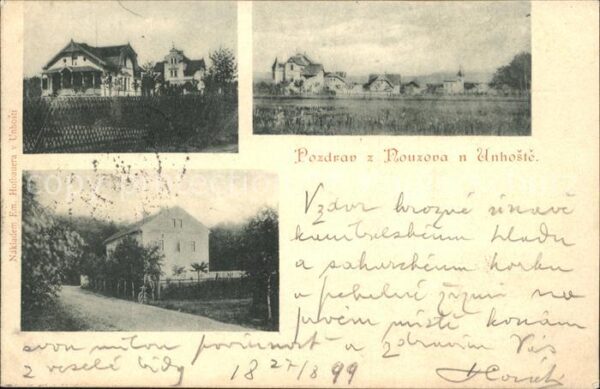 Nákladem Em. Hofbauera v Unhošti
Pozdrav z Nouzova u Unhoště.
Vzdor hrozné únavě
hladu
a saharském horku
a pekelné žízni na
prvém místě konám
svou milou povinnost a zdravím Vás
z veselé 18 27/8 99